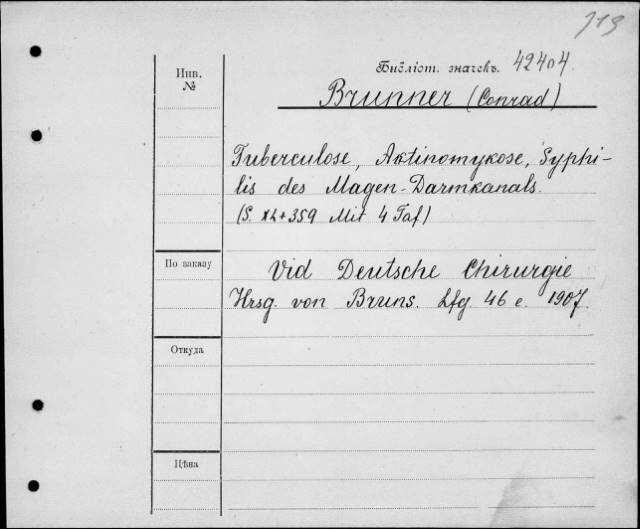 713
Библіот. значекъ. 42404.
Инв.
№
Brunner (Conrad)
Tuberculose, Aktinomykose, Syphi-
lis des Magen-Darmkanals.
(S. XL+359 Mit 4 Taf)
По заказу
Vid Deutsche Chirurgie
Hrsg. von Bruns. Lfg 46 e. 1907.
Откуда
Цѣна